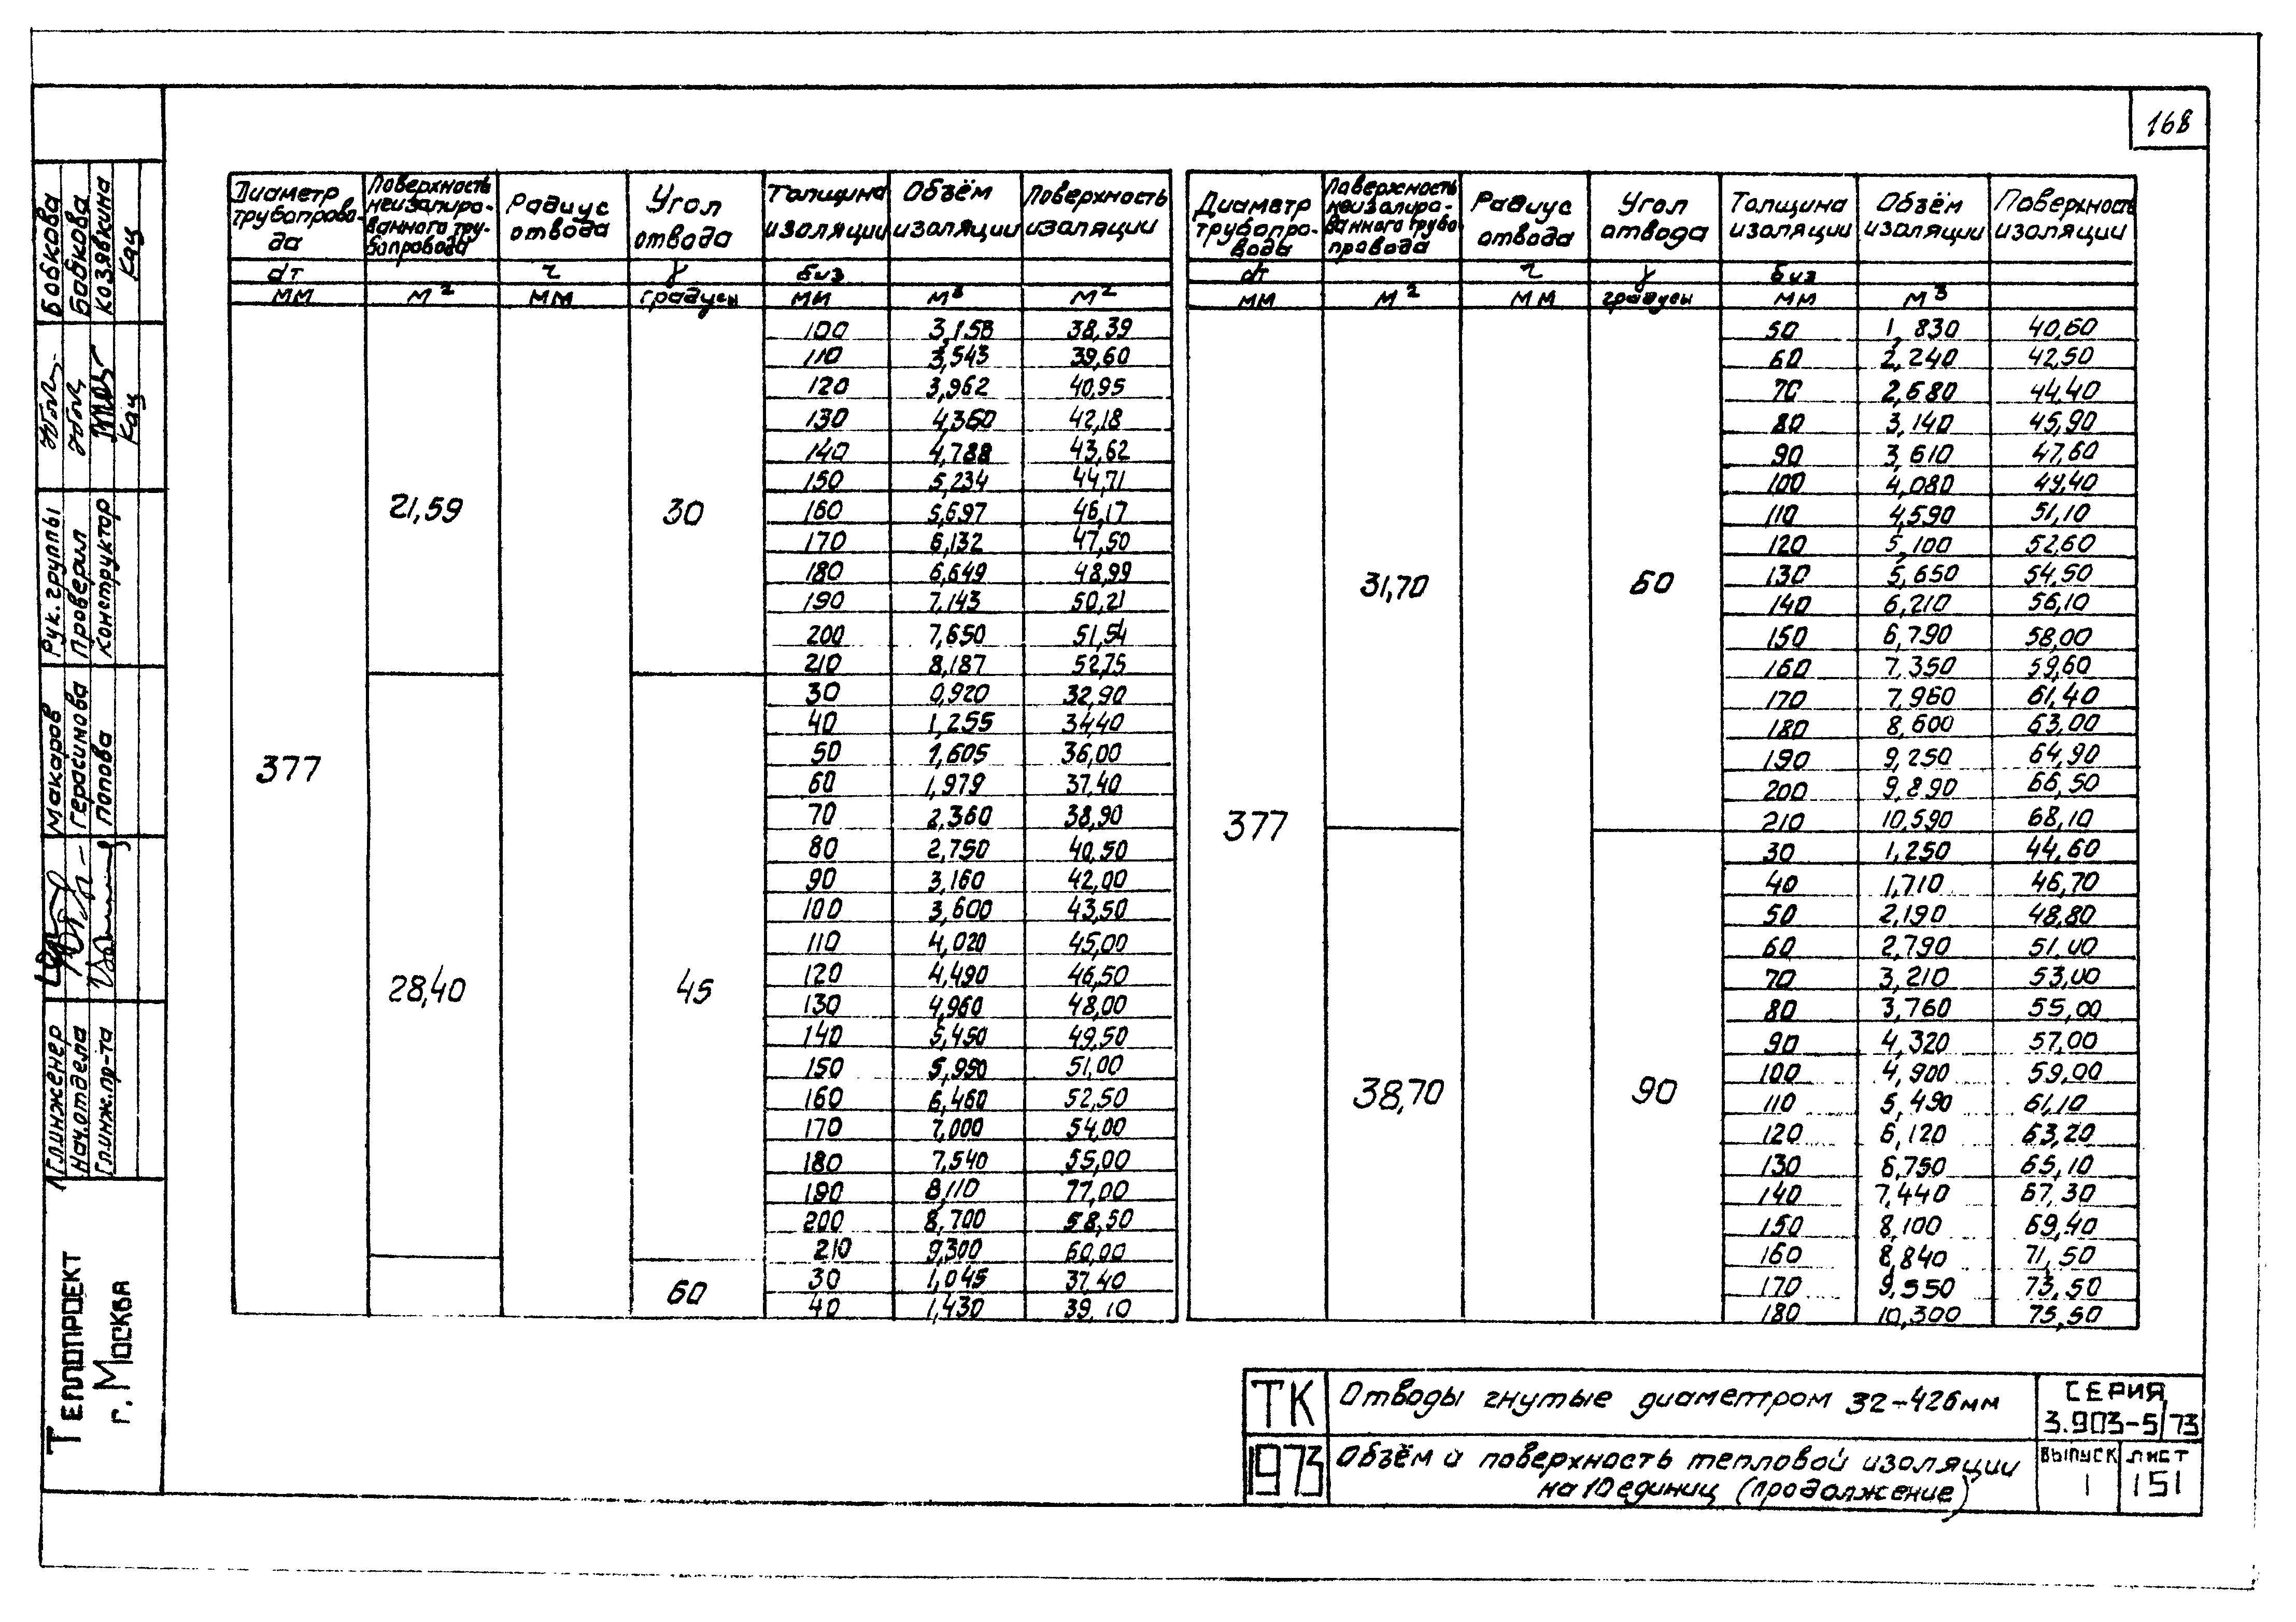 168
Диаметр трубопрово-да | Поверхность неизолиро-ванного тру-бопровода | Радиус отвода | Угол отвода | Толщина изоляции | Объём изоляции | Поверхность изоляции
dт | r | γ | биз
мм | м² | мм | градусы | мм | м³ | м²
377
21,59 | 30
100 | 3,158 | 38,39
110 | 3,543 | 39,60
120 | 3,962 | 40,95
130 | 4,360 | 42,18
140 | 4,788 | 43,62
150 | 5,234 | 44,71
160 | 5,697 | 46,17
170 | 6,132 | 47,50
180 | 6,649 | 48,99
190 | 7,143 | 50,21
200 | 7,650 | 51,54
210 | 8,187 | 52,75
28,40 | 45
30 | 0,920 | 32,90
40 | 1,255 | 34,40
50 | 1,605 | 36,00
60 | 1,979 | 37,40
70 | 2,360 | 38,90
80 | 2,750 | 40,50
90 | 3,160 | 42,00
100 | 3,600 | 43,50
110 | 4,020 | 45,00
120 | 4,490 | 46,50
130 | 4,960 | 48,00
140 | 5,450 | 49,50
150 | 5,950 | 51,00
160 | 6,460 | 52,50
170 | 7,000 | 54,00
180 | 7,540 | 55,00
190 | 8,110 | 77,00
200 | 8,700 | 58,50
210 | 9,300 | 60,00
60
30 | 1,045 | 37,40
40 | 1,430 | 39,10
Диаметр трубопро-вода | Поверхность неизолиро-ванного трубо провода | Радиус отвода | Угол отвода | Толщина изоляции | Объём изоляции | Поверхность изоляции
dт | r | γ | биз
мм | м² | мм | градусы | мм | м³
377
31,70 | 60
50 | 1,830 | 40,60
60 | 2,240 | 42,50
70 | 2,680 | 44,40
80 | 3,140 | 45,90
90 | 3,610 | 47,60
100 | 4,080 | 49,40
110 | 4,590 | 51,10
120 | 5,100 | 52,60
130 | 5,650 | 54,50
140 | 6,210 | 56,10
150 | 6,790 | 58,00
160 | 7,350 | 59,60
170 | 7,960 | 61,40
180 | 8,600 | 63,00
190 | 9,250 | 64,90
200 | 9,890 | 66,50
210 | 10,590 | 68,10
38,70 | 90
30 | 1,250 | 44,60
40 | 1,710 | 46,70
50 | 2,190 | 48,80
60 | 2,790 | 51,00
70 | 3,210 | 53,00
80 | 3,760 | 55,00
90 | 4,320 | 57,00
100 | 4,900 | 59,00
110 | 5,490 | 61,10
120 | 6,120 | 63,20
130 | 6,750 | 65,10
140 | 7,440 | 67,30
150 | 8,100 | 69,40
160 | 8,840 | 71,50
170 | 9,550 | 73,50
180 | 10,300 | 75,50
ТК | Отводы гнутые диаметром 32-426мм | СЕРИЯ 3.903-5/73
1973 | Объём и поверхность тепловой изоляции
на 10 единиц (продолжение)
ВЫПУСК 1 | ЛИСТ 151
Гл.инженер | Макаров | Рук.группы | Бобкова
Нач.отдела | Герасимова | Проверил | Бобкова
Гл.инж.пр-та | Попова | Конструктор | Козявкина
Кац Кац
Теплопроект
г. Москва